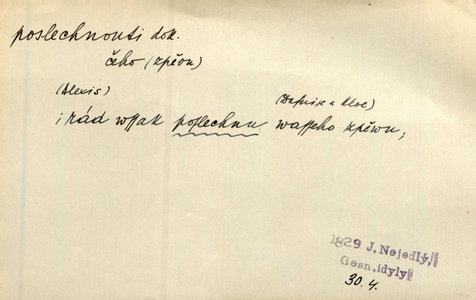 poslechnouti dok.
čeho (zpěvu)
(Alexis)
(Dafnise a Kloe)
i rád wssak poslechnu wasseho zpěwu;
1829 J. Nejedlý,
Gesn. idyly
30.4.